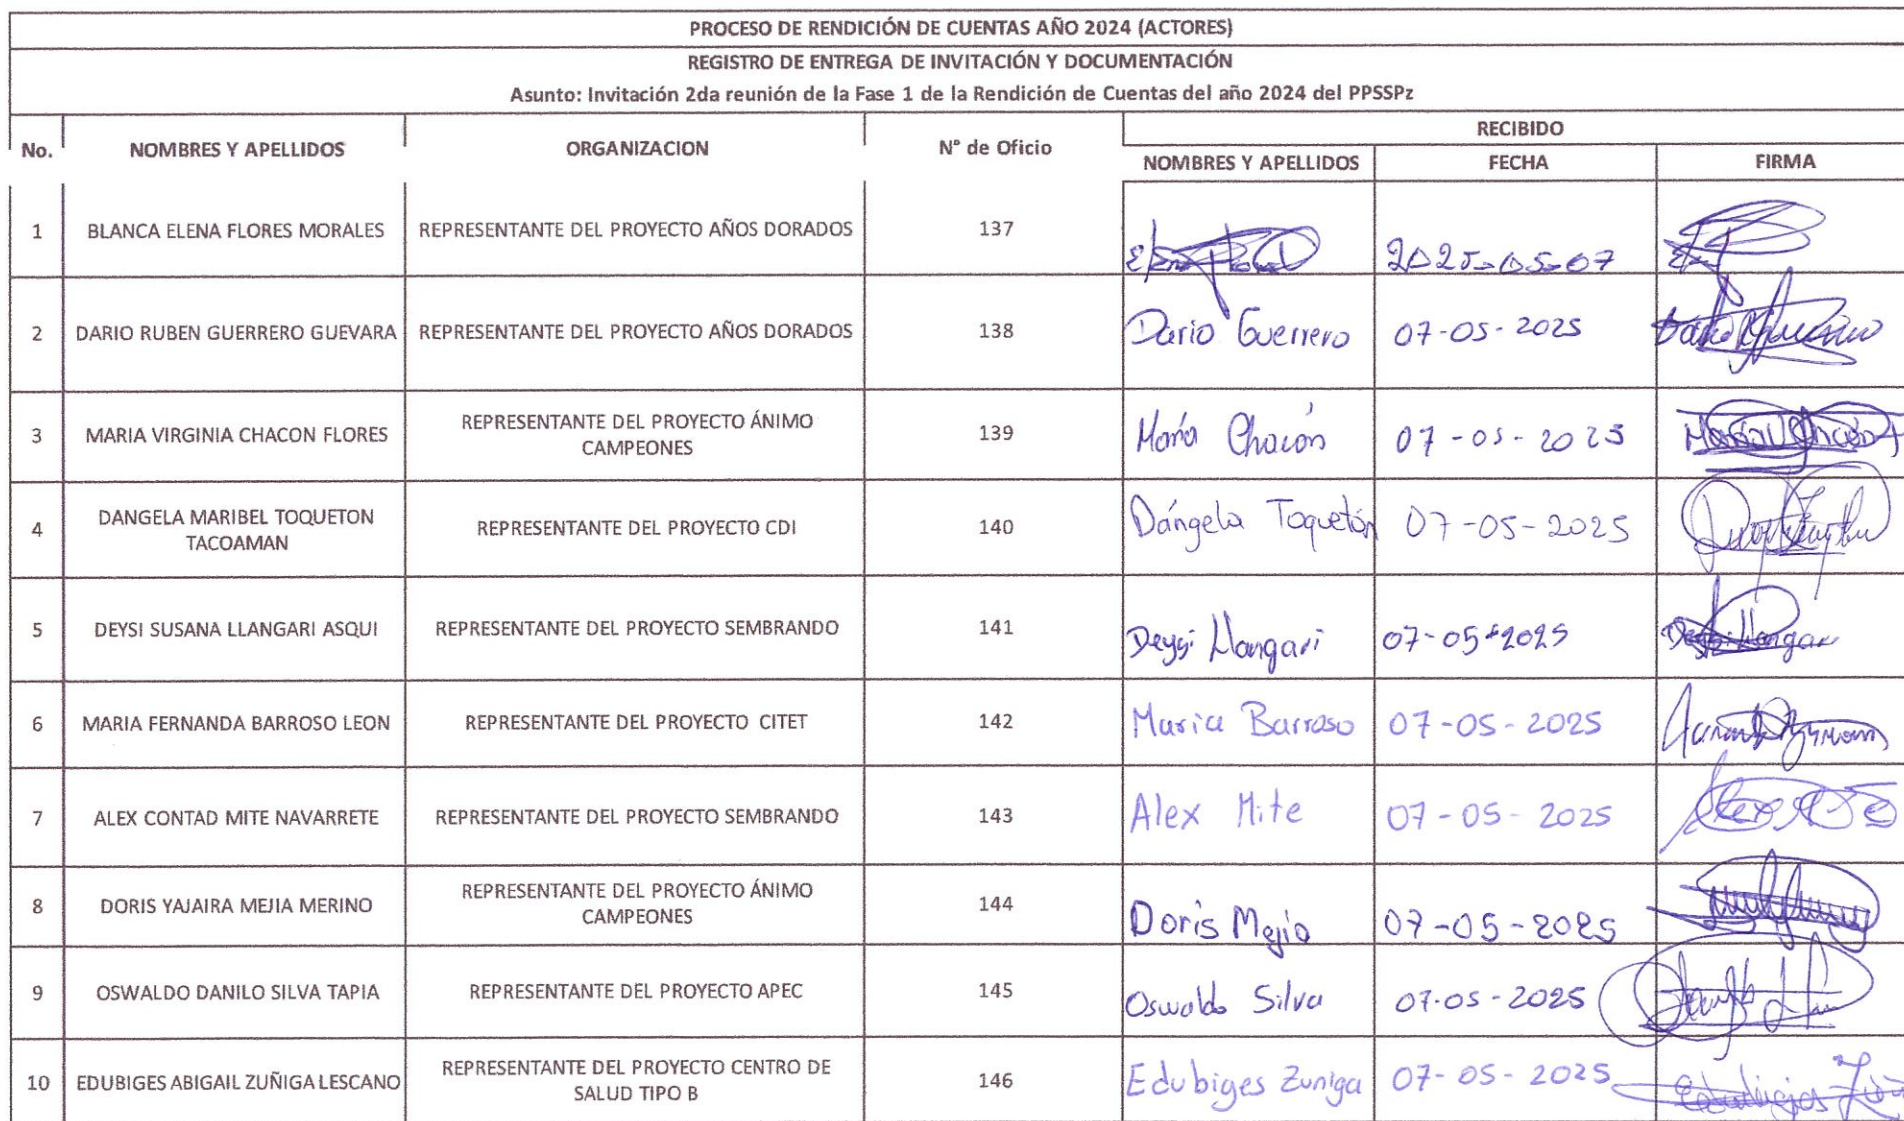 PROCESO DE RENDICIÓN DE CUENTAS AÑO 2024 (ACTORES)
REGISTRO DE ENTREGA DE INVITACIÓN Y DOCUMENTACIÓN
Asunto: Invitación 2da reunión de la Fase 1 de la Rendición de Cuentas del año 2024 del PPSSPz
No. NOMBRES Y APELLIDOS ORGANIZACION N° de Oficio RECIBIDO
NOMBRES Y APELLIDOS FECHA FIRMA
1 BLANCA ELENA FLORES MORALES REPRESENTANTE DEL PROYECTO AÑOS DORADOS 137 2025-05-07
2 DARIO RUBEN GUERRERO GUEVARA REPRESENTANTE DEL PROYECTO AÑOS DORADOS 138 Dario Guerrero 07-05-2025
3 MARIA VIRGINIA CHACON FLORES REPRESENTANTE DEL PROYECTO ÁNIMO
CAMPEONES 139 María Chacón 07-05-2025
4 DANGELA MARIBEL TOQUETON
TACOAMAN REPRESENTANTE DEL PROYECTO CDI 140 Dángela Toquetón 07-05-2025
5 DEYSI SUSANA LLANGARI ASQUI REPRESENTANTE DEL PROYECTO SEMBRANDO 141 Deysi Llangari 07-05-2025
6 MARIA FERNANDA BARROSO LEON REPRESENTANTE DEL PROYECTO CITET 142 Maria Barroso 07-05-2025
7 ALEX CONTAD MITE NAVARRETE REPRESENTANTE DEL PROYECTO SEMBRANDO 143 Alex Mite 07-05-2025
8 DORIS YAJAIRA MEJIA MERINO REPRESENTANTE DEL PROYECTO ÁNIMO
CAMPEONES 144 Doris Mejia 07-05-2025
9 OSWALDO DANILO SILVA TAPIA REPRESENTANTE DEL PROYECTO APEC 145 Oswaldo Silva 07-05-2025
10 EDUBIGES ABIGAIL ZUÑIGA LESCANO REPRESENTANTE DEL PROYECTO CENTRO DE
SALUD TIPO B 146 Edubiges Zuniga 07-05-2025